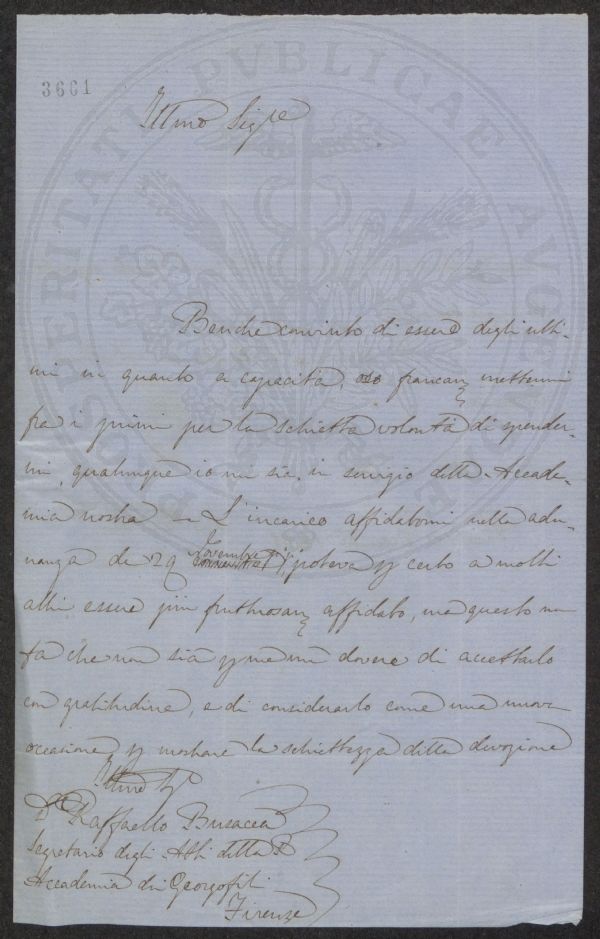 3661
Illmo Sigre
Benchè convinto di essere degli ulti-
mi in quanto a capacità, oso francam mettermi
fra i primi per la schietta volontà di spender-
mi, qualunque io mi sia, in servigio della Accade-
mia nostra — L'incarico affidatomi nella adu-
nanza de 29 Novembre poteva p certo a molti
altri essere più fruttuosam affidato, ma questo non
fa che non sia p me un dovere di accettarlo
con gratitudine, e di considerarlo come una nuova
occasione p mostrare la schiettezza della devozione
Illmo Sr
Dr Raffaello Busacca
Segretario degli Atti della R.
Accademia dei Georgofili
Firenze
PROSPERITATI PVBLICAE AVGENDAE